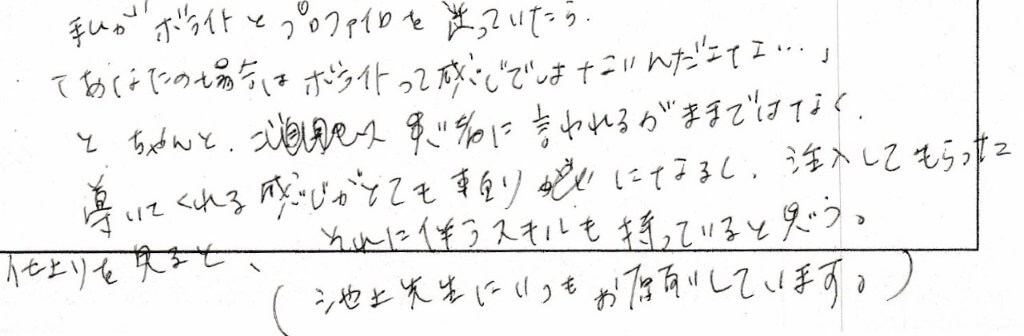 私がボライトとプロファイロを迷っていたら、
「あなたの場合はボライトって感じではないんだよなぁ…」
と ちゃんと、患者に言われるがままではなく、
導いてくれる感じがとても頼りになるし、注入してもらった
仕上りを見ると、それに伴うスキルも持っていると思う。
(池上先生にいつもお願いしています。)